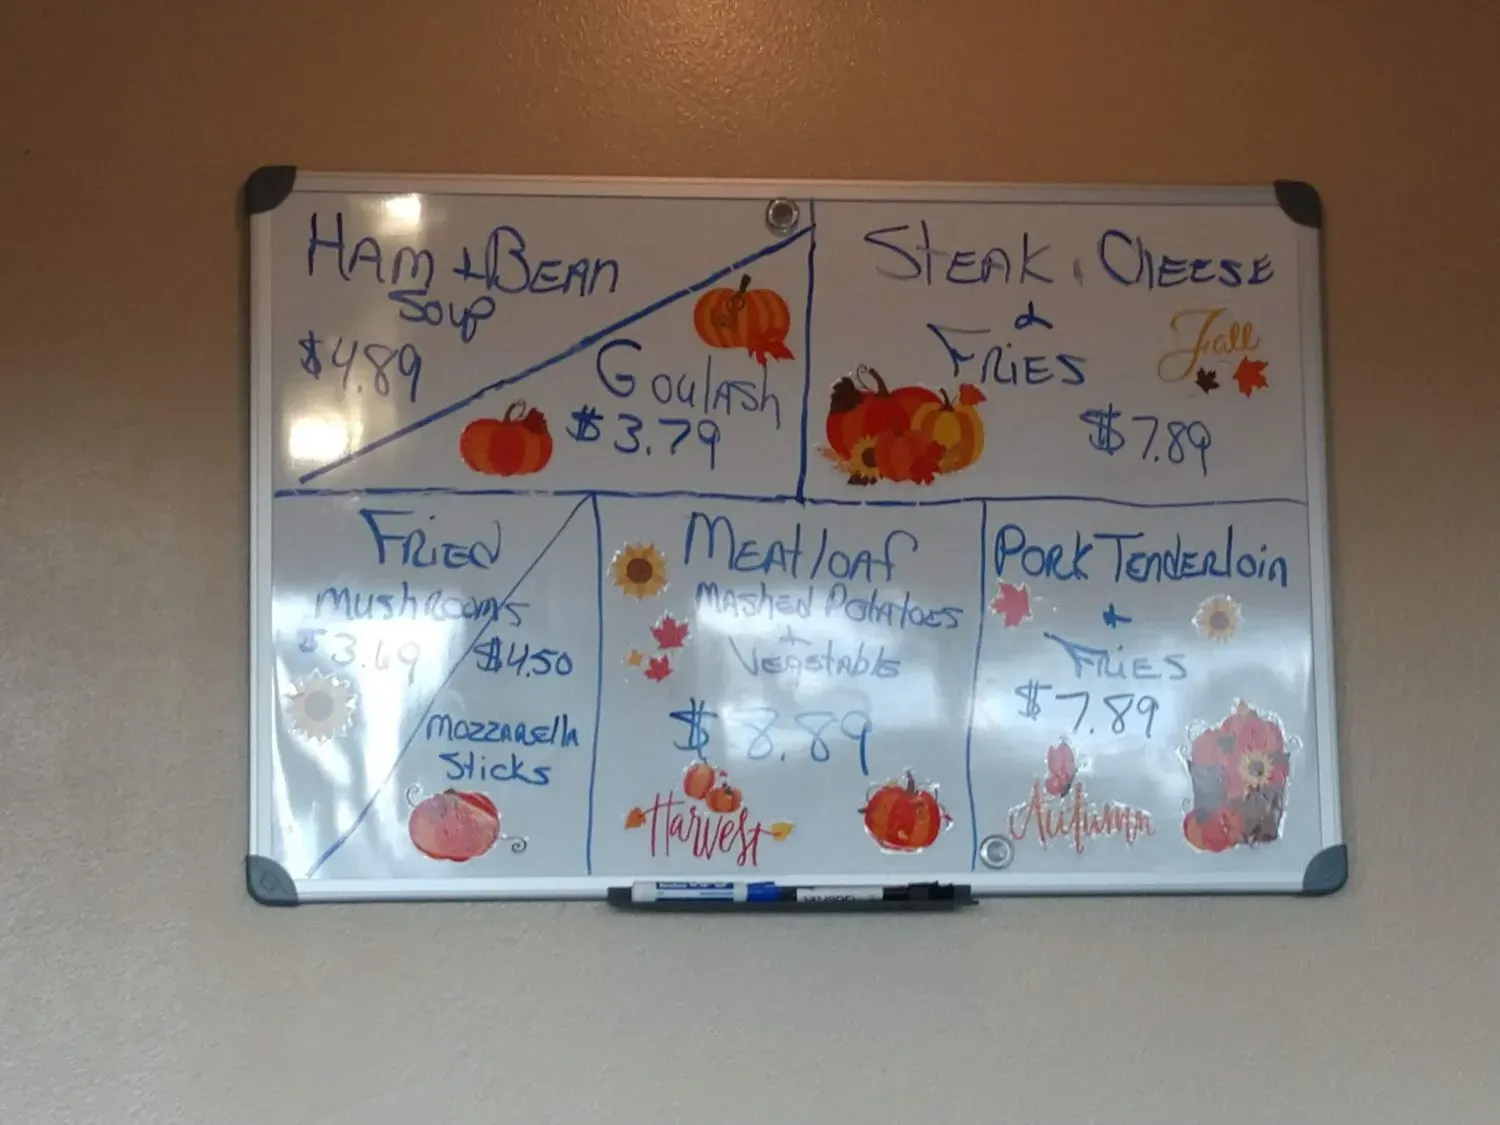 HAM + BEAN
Soup
$4.89
GoulAsh
$3.79
STEAK, CHEESE
&
FRIES
Fall
$7.89
FRIED
mushRooms
$3.69
$4.50
mozzARellA
Sticks
MEAtloaf
MASHED PotAtoES
+
VegetAblE
$8.89
Harvest
PORK TENDERloin
+
FRIES
$7.89
Autumn